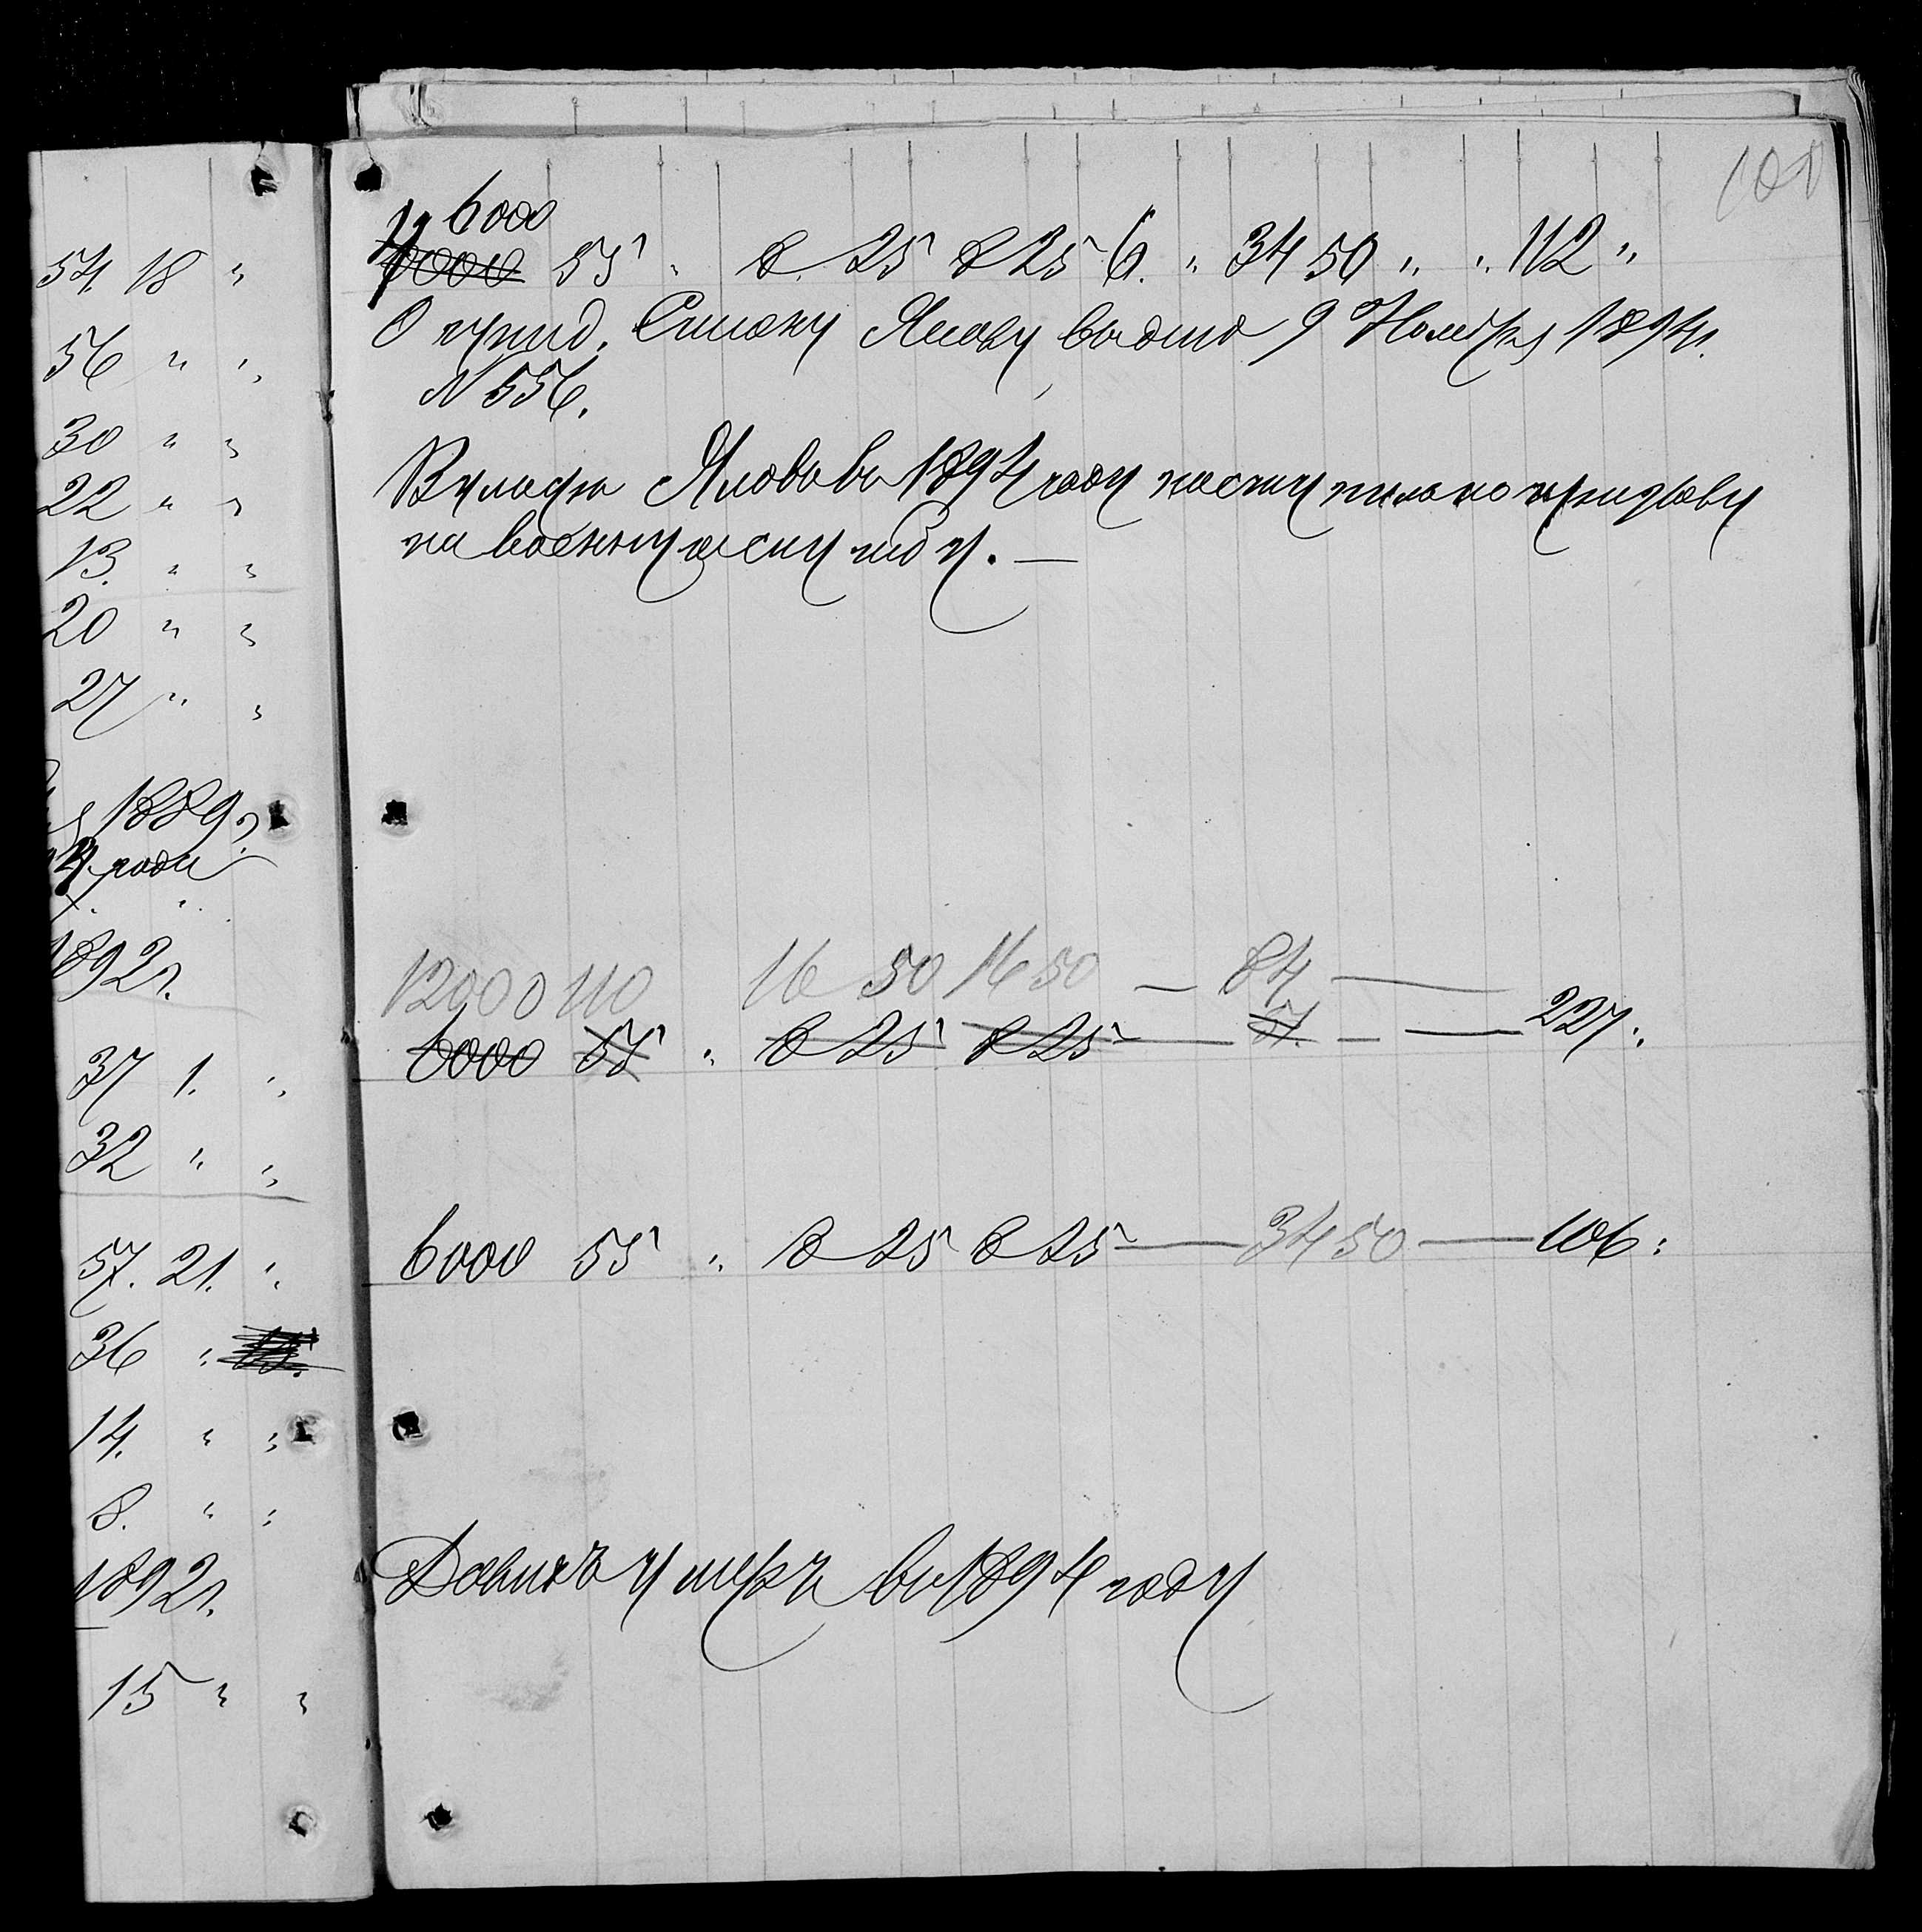 54. 18 "
56 " "
30 " "
22 " "
13. " "
20 " "
27 " "
1889 г.
4 года
1892 г.
37 1. "
32 " "
57. 21. "
36 "
14. " "
8. " "
1892 г.
15 " "
6000
55 " 8. 25 8 25 6. " 34 50 " " 112 "
О Симону выдано 9 Ноября 1894 г.
N 556.
въ 1894 году поступилъ по призову
на военную службу. —
12000 110 16 50 16 50 — 84 —
6000 55 " 8 25 8 25 — — — 227.
6000 55 " 8 25 8 25 — 34 50 — 106
умеръ въ 1894 году